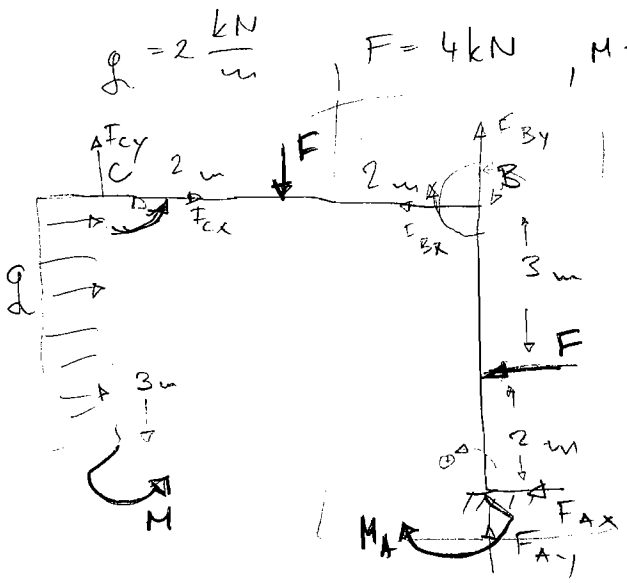 q = 2 kN/m F = 4 kN , M
F_Cy
C 2 m F F_By
2 m B
F_Cx F_Bx
q 3 m
F
3 m
2 m
M M_A F_Ax
F_Ay